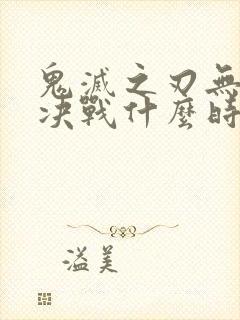 鬼滅之刃無
决戰什麼時
溢美